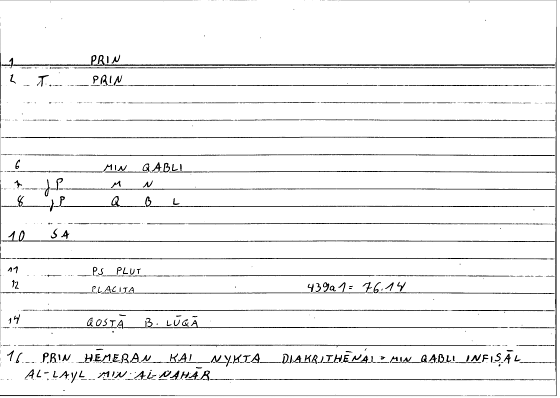 1 PRIN
2 T PRIN
6 MIN QABLI
7 jP M N
8 jP Q B L
10 SA
11 PS PLUT
12 PLACITA 439a1 = 76.14
14 QOSṬĀ B. LŪQĀ
16 PRIN HĒMERAN KAI NYKTA DIAKRITHĒNAI = MIN QABLI INFIṢĀL
AL-LAYL MIN AL-NAHĀR